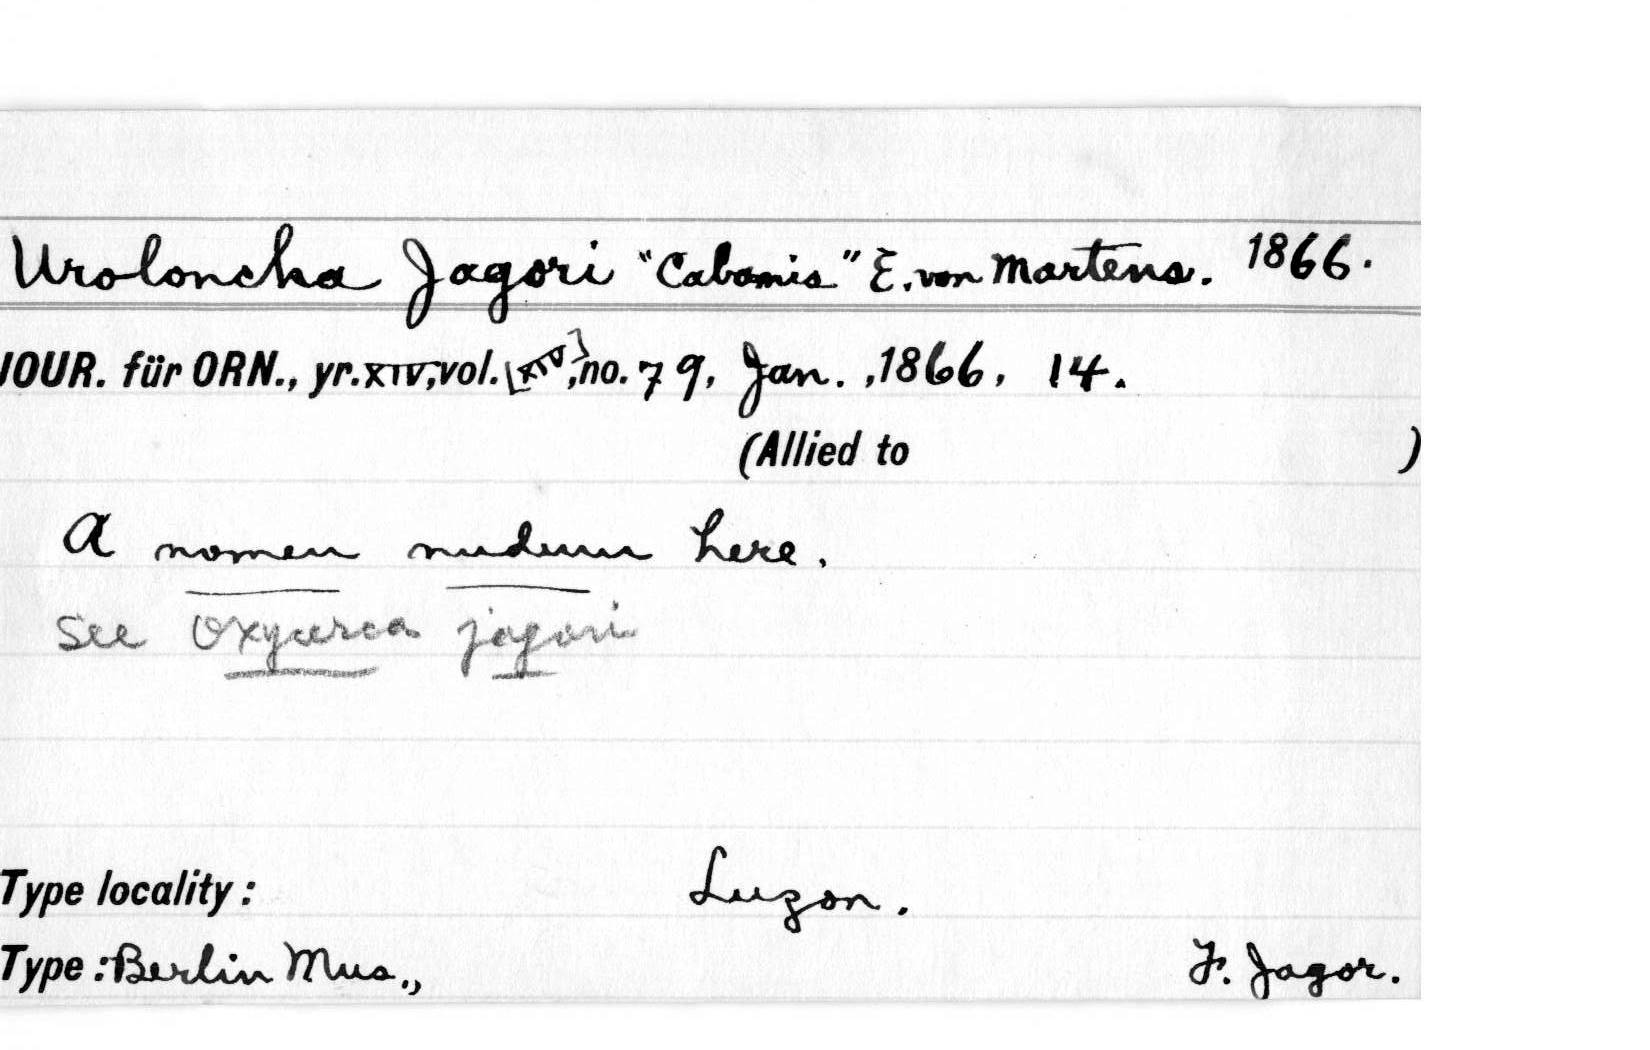 Uroloncha Jagori "Cabanis" E. von Martens. 1866.
JOUR. für ORN., yr. XIV, vol. [XIV], no. 79, Jan. , 1866, 14.
(Allied to )
A nomen nudum here.
See Oxycerca jagori
Type locality: Luzon.
Type: Berlin Mus., F. Jagor.